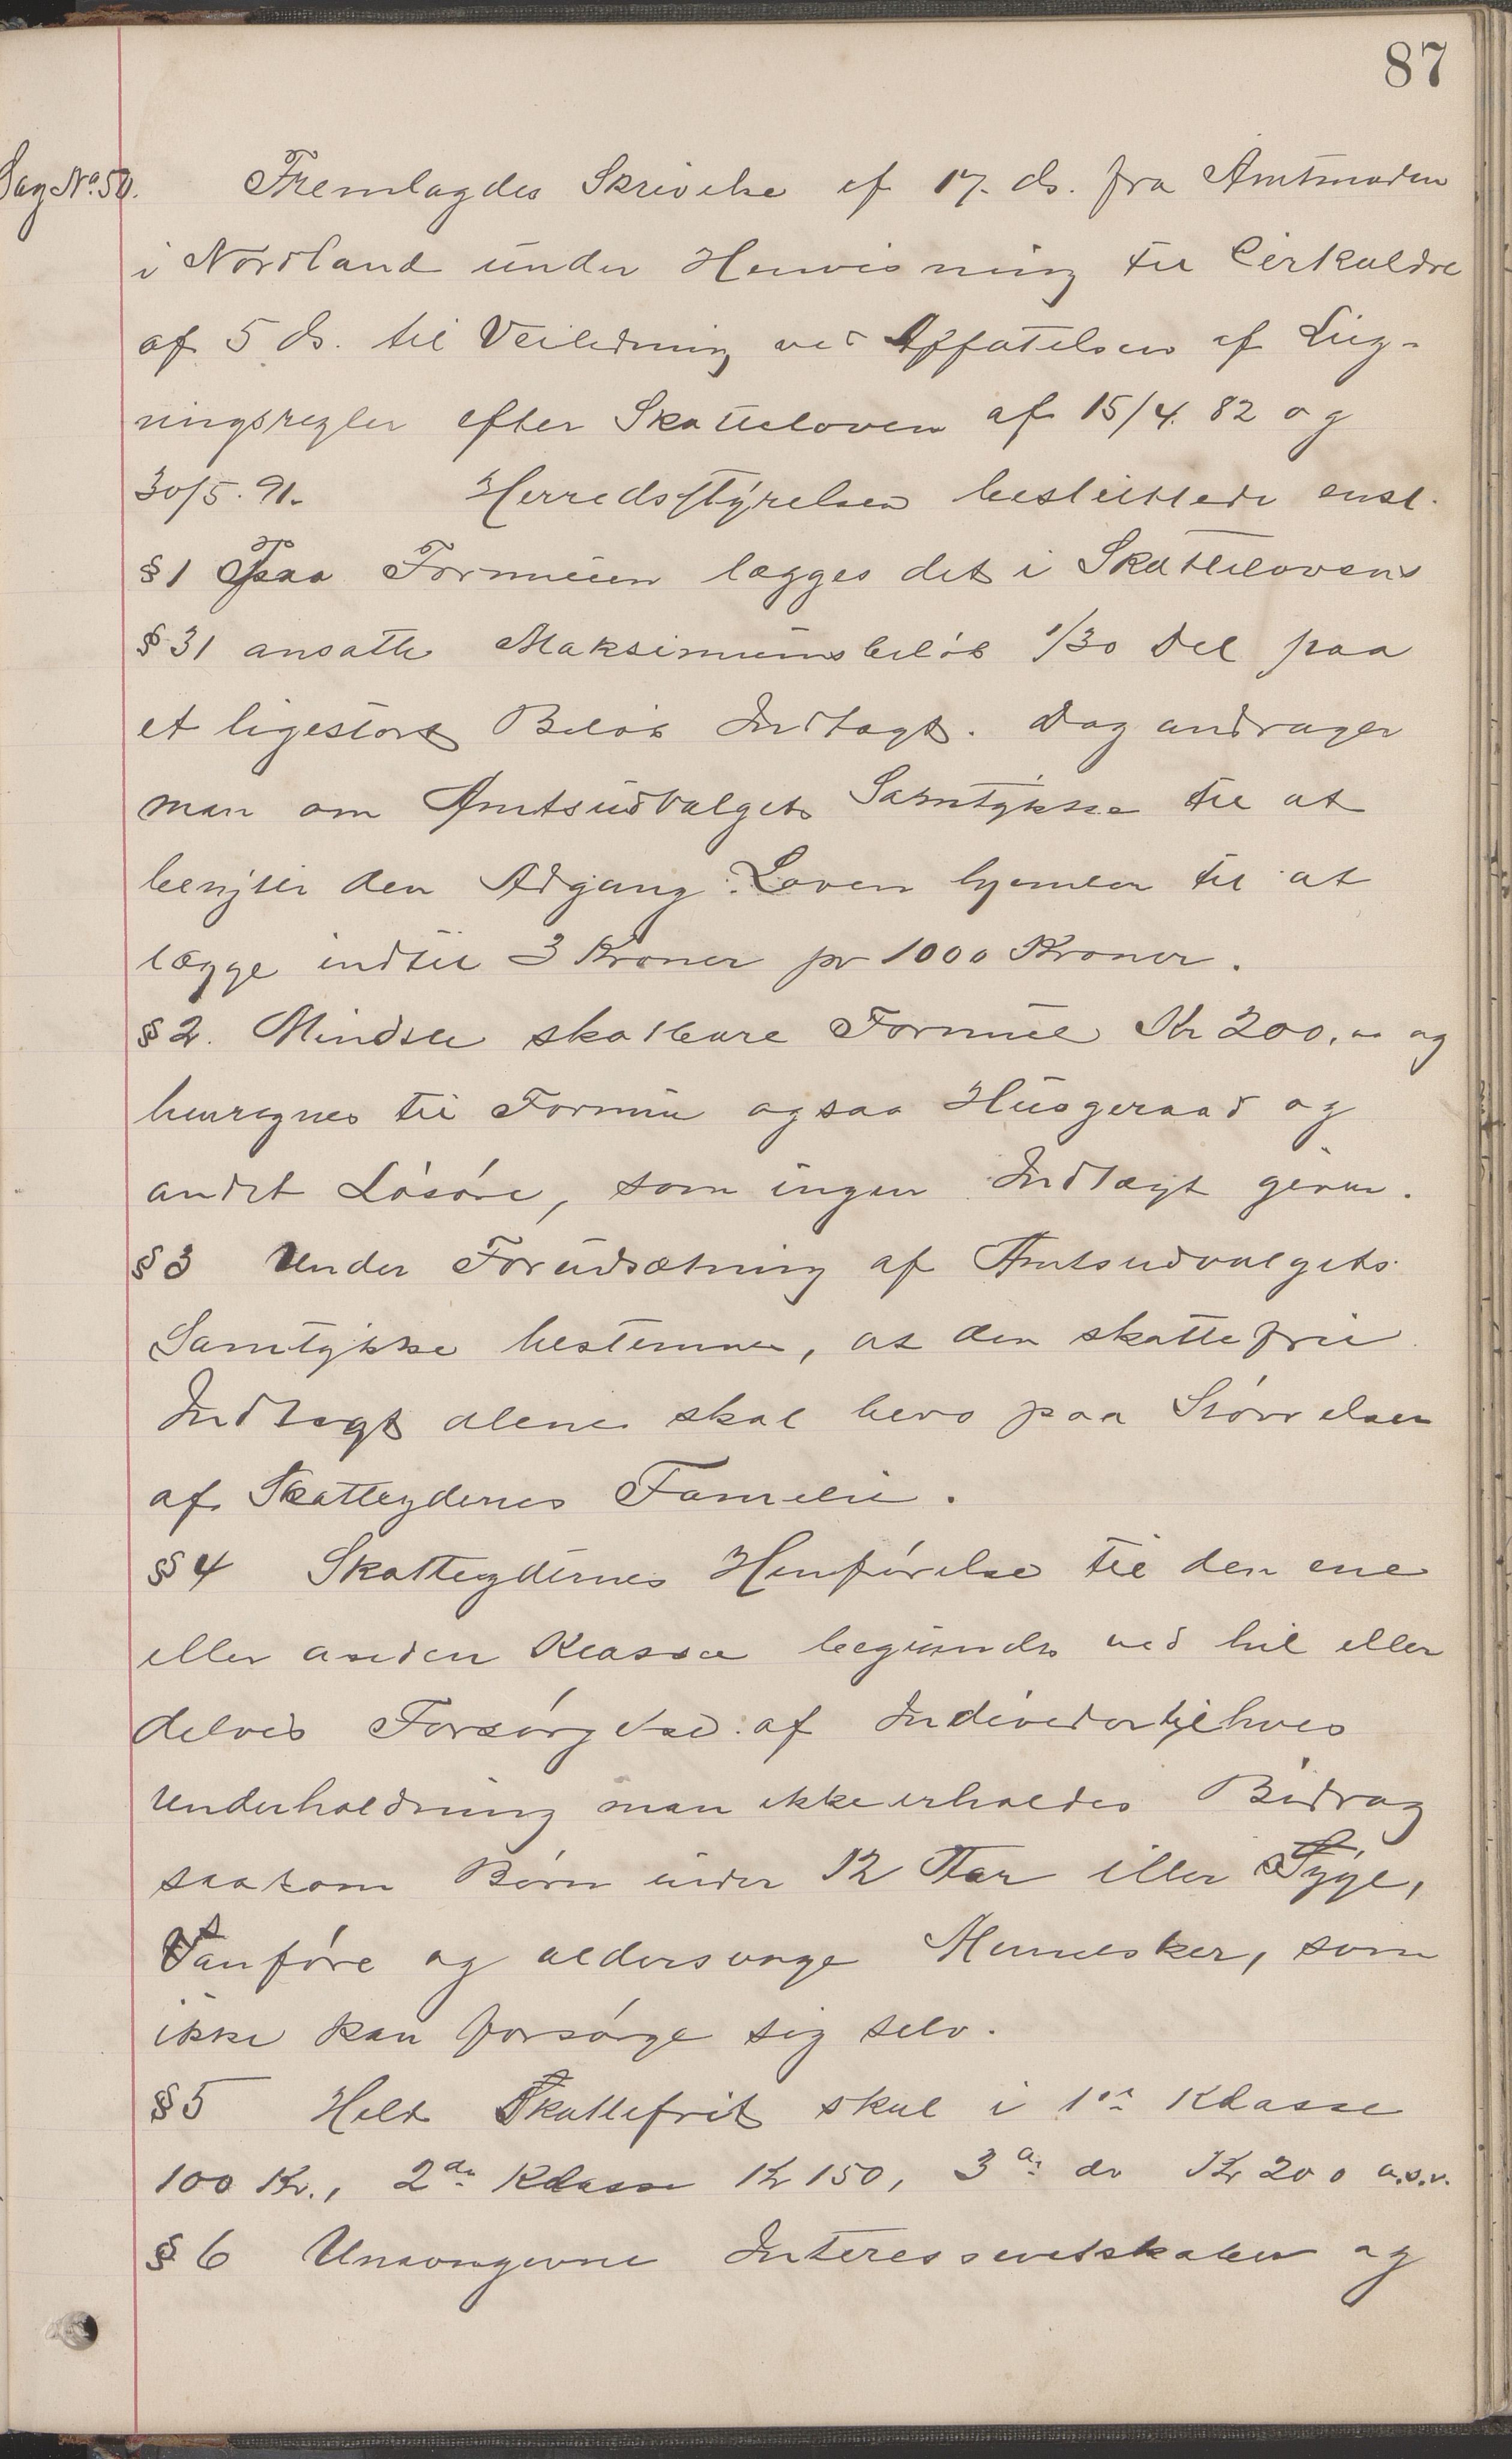 87
Sag No. 50. Fremlagdes Skrivelse af 17. ds. fra Amtmaden
i Nordland under Henvisning til Cirkulære
af 5 ds. til Veiledning ved Affatelsen af Lig-
ningsregler efter Skatteloven af 15/4. 82 og
30/5. 91. Herredsstyrelsen besluttede enst.
§ 1 Paa Formuen lægges det i Skattelovens
§ 31 ansatte Maksimumsbeløb 1/30 Del paa
et ligestort Beløb Indtægt. Dog andrager
man om Amtsudvalgets Samtykke til at
benytte den Adgang Loven hjemler til at
lægge indtil 3 Kroner pr 1000 Kroner.
§ 2. Mindste skatbare Formue Kr 200,00 og
henregnes til Formue ogsaa Husgeraad og
andet Løsøre, som ingen Indtægt giver.
§ 3 Under Forudsætning af Amtsudvalgets
Samtykke bestemmes, at den skattefrie
Indtægt alene skal bero paa Størrelsen
af Skatteydernes Familie.
§ 4 Skatteydernes Henførelse til den ene
eller anden Klasse begrundes ved hel eller
delvis Forsørgelse af Individer til hves
Underholdning man ikke erholder Bidrag
saasom Børn under 12 Aar eller Syge,
Vanføre og aldersvage Mennesker, som
ikke kan forsørge sig selv.
§ 5 Helt Skattefrit skal i 1ste Klasse
100 Kr., 2den Klasse Kr 150, 3die do Kr 200 o.s.v.
§ 6 Interessentskaber og